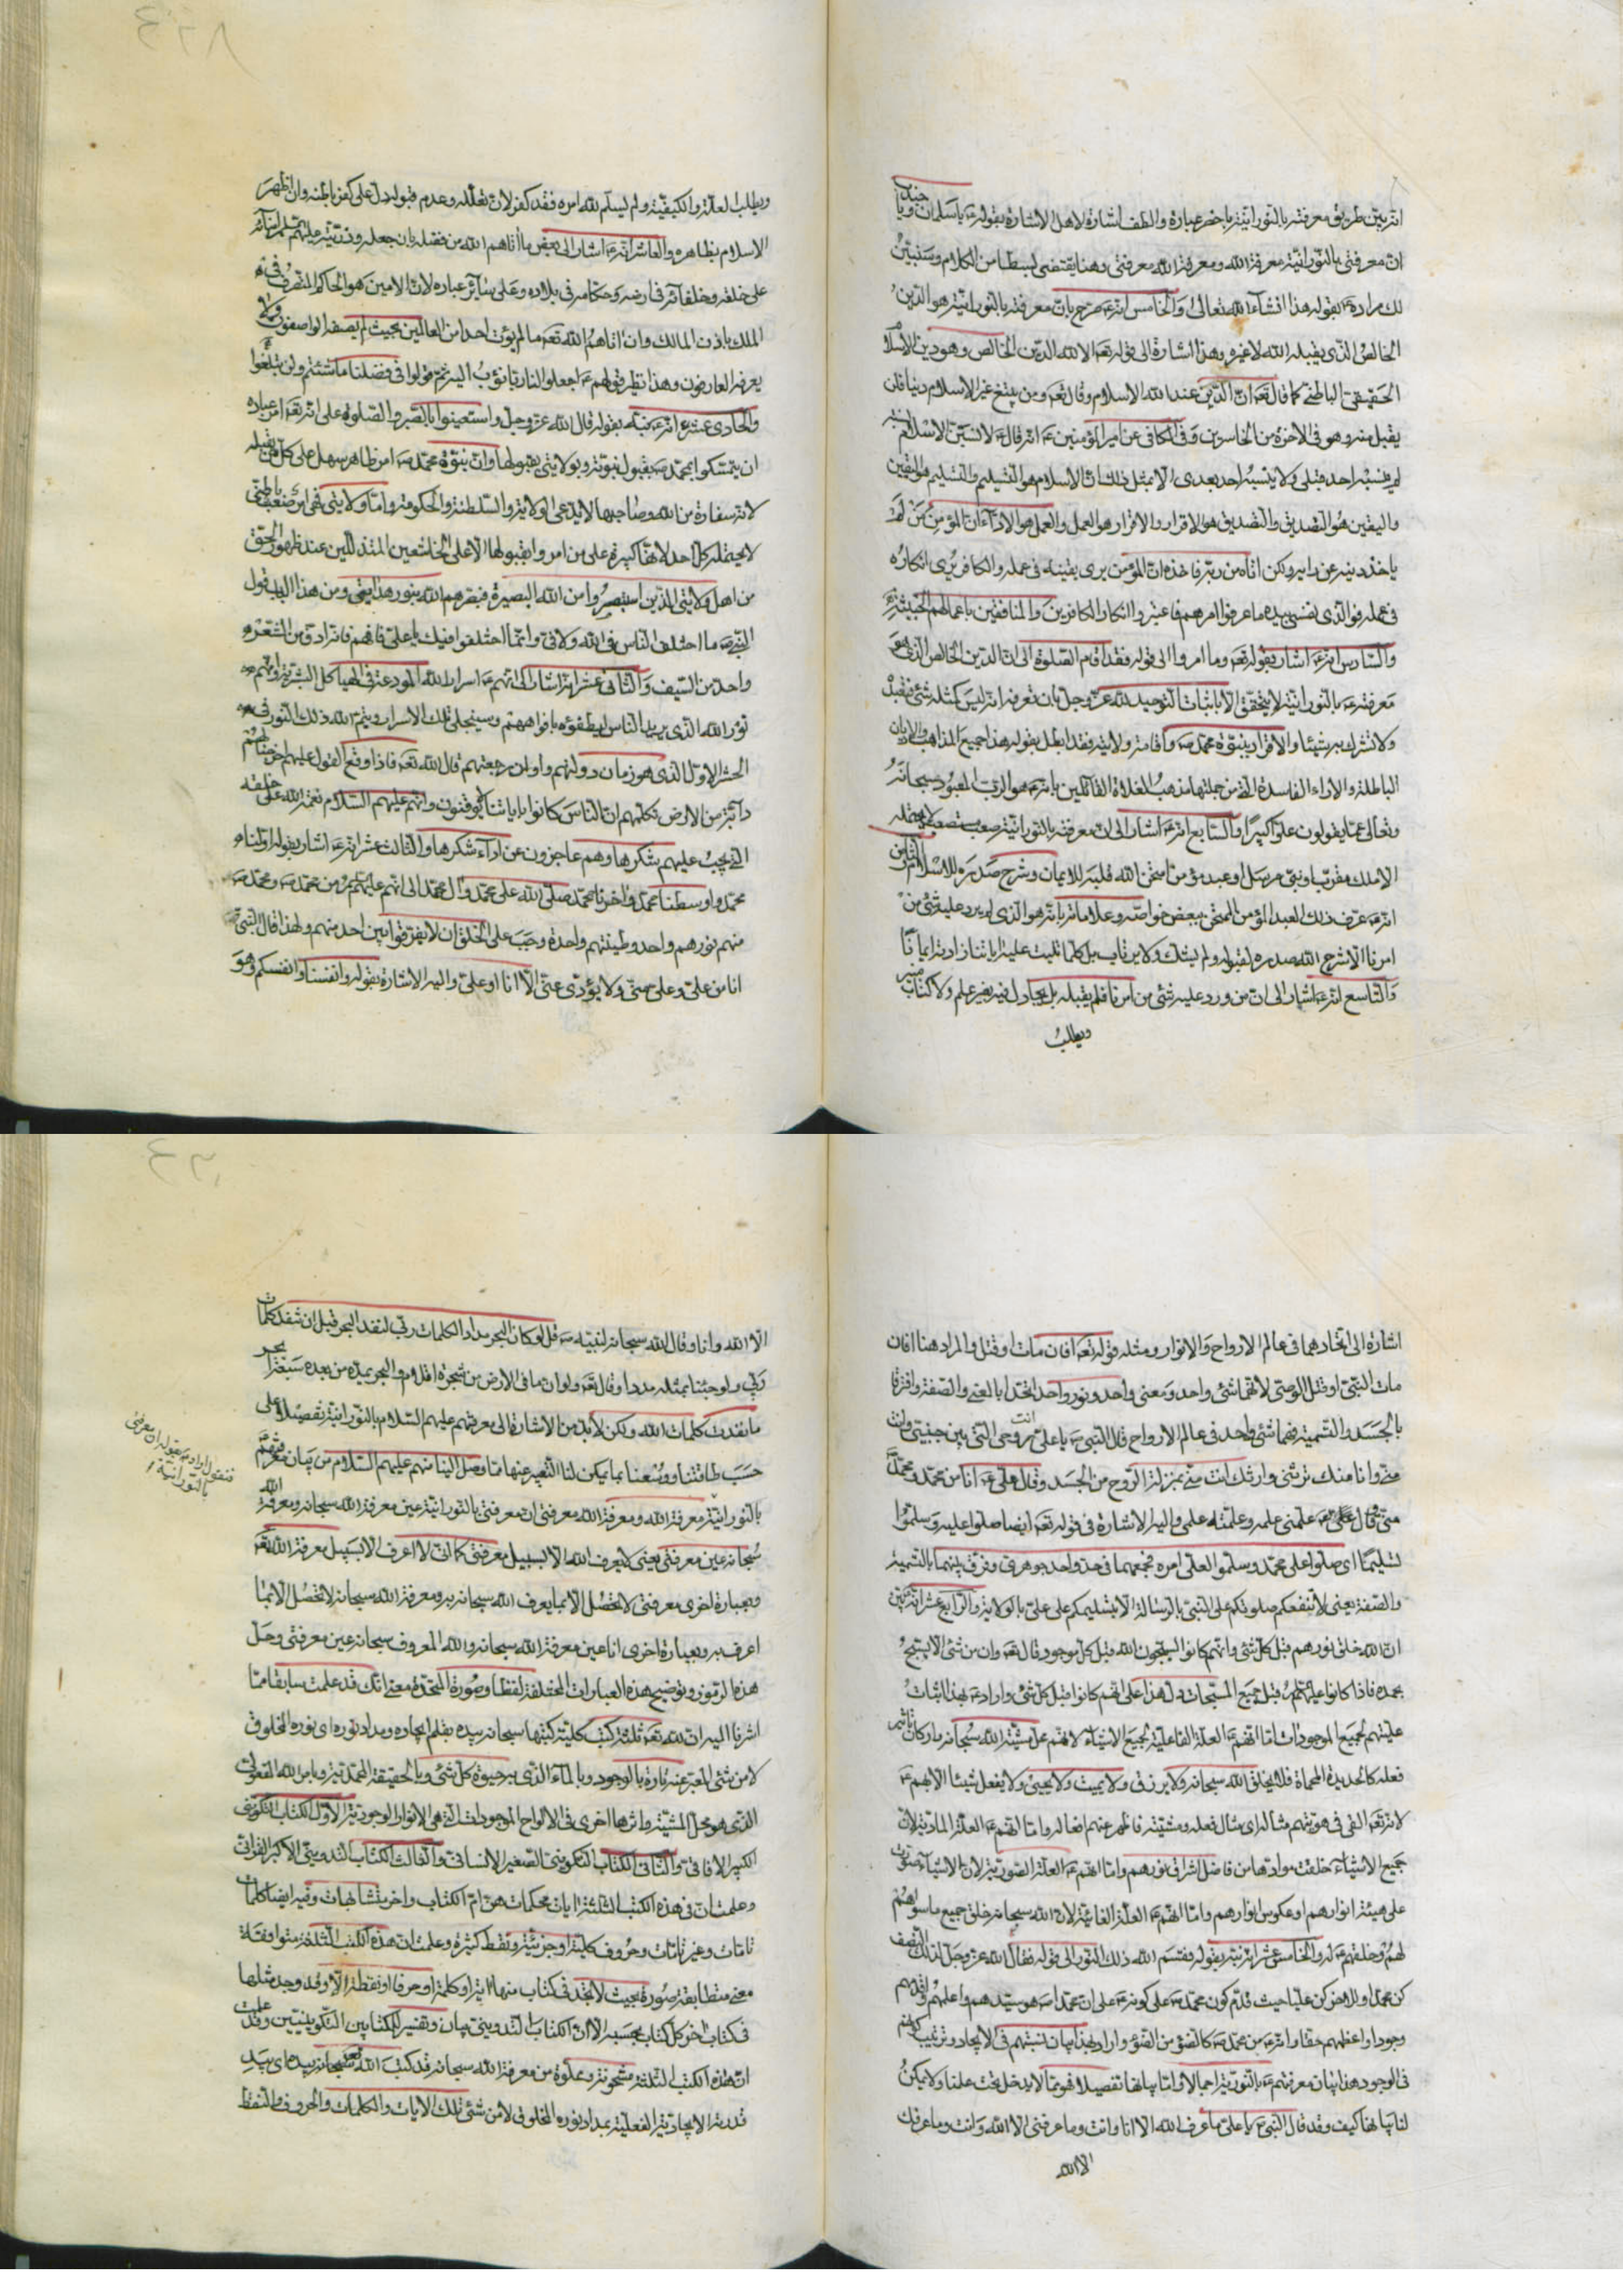 انه بين طريق معرفته بالنورانية باخصر عبارة والطف اشارة لاهل الاشارة بقوله ع يا سلمان ويا جندب
ان معرفتي بالنورانية معرفة الله ومعرفة الله معرفتي وهنا يقتضي لبسطا من الكلام وسنبين
لك مراده ع بقوله هذا انشاء الله تعالى والخامس انه ع صرح بان معرفته بالنورانية هو الدين
الخالص الذي يقبله الله لا غيره وهذا اشارة الى قوله تعه الا لله الدين الخالص وهو دين الاسلام
الحقيقي الباطني كما قال تعه ان الدين عند الله الاسلام وقال تعه ومن يبتغ غير الاسلام دينا فلن
يقبل منه وهو في الاخرة من الخاسرين وفي الكافي عن امير المؤمنين ع انه قال ع لانسبن الاسلام نسبة
لم ينسبه احد قبلي ولا ينسبه احد بعدي الا بمثل ذلك ان الاسلام هو التسليم والتسليم هو اليقين
واليقين هو التصديق والتصديق هو الاقرار والاقرار هو العمل والعمل هو الاداء ان المؤمن من لم
ياخذ دينه عن رايه ولكن اتاه من ربه فاخذه ان المؤمن يرى يقينه في عمله والكافر يرى انكاره
في عمله فوالذي نفسي بيده ما عرفوا امرهم فاعتبروا انكار الكافرين والمنافقين باعمالهم الخبيثة
والسادس انه ع اشار بقوله تعه وما امروا الى قوله فقد اقام الصلوة الى ان الدين الخالص الذي هو
معرفته ع بالنورانية لا يتحقق الا باثبات التوحيد لله عز وجل بان تعرفه انه ليس كمثله شئ
ولا تشرك به شيئا والاقرار بنبوة محمد ص واقامة ولايته فقد ابطل بقوله هذا جميع المذاهب والاديان
الباطلة والاراء الفاسدة التي من جملتها مذهب الغلاة القائلين بانه ع هو الرب المعبود سبحانه
وتعالى عما يقولون علوا كبيرا والسابع انه ع اشار الى ان معرفته بالنورانية صعب مستصعب لا يحتمله
الا ملك مقرب او نبي مرسل او عبد مؤمن امتحن الله قلبه للايمان وشرح صدره للاسلام الثامن
انه ع عرف ذلك العبد المؤمن الممتحن ببعض خواصه وعلاماته بانه هو الذي لم يرد عليه شئ من
امرنا الا شرح الله صدره لقبوله ولم يشك ولا يرتاب بل كلما تليت عليه اياتنا زادته ايمانا
والتاسع انه ع اشار الى ان من ورد عليه شئ من امرنا فلم يقبله بل يجادل فيه بغير علم ولا كتاب منير
ويطلب
ويطلب العلة والكيفية ولم يسلم لله امره فقد كفر لان تعلله وعدم قبوله دل على كفر باطنه وان اظهر
الاسلام بظاهره والعاشر انه ع اشار الى بعض ما اتاهم الله من فضله بان جعله وذريته عليهم السلام امناء
على خلقه وخلفائه في ارضه وحكامه في بلاده وعلى سائر عباده لان الامين هو الحاكم المتصرف في
الملك باذن المالك وان اتاهم الله تعه ما لم يؤت احدا من العالمين بحيث لم يصفه الواصفون ولا
يعرفه العارفون وهذا نظير قولهم ع اجعلوا لنا ربا نؤب اليه ثم قولوا في فضلنا ما شئتم ولن تبلغوا
والحادي عشر انه ع نبه بقوله قال الله عز وجل واستعينوا بالصبر والصلوة على انه تعه امر عباده
ان يتمسكوا بمحمد ص بقبول نبوته وبولايتي بقبولها وان نبوة محمد ص امر ظاهر سهل على كل من يقبله
لانه سفارة من الله وصاحبها لا يدعي الولاية والسلطنة والحكومة واما ولايتي فهي امر صعب باطني
لا يحتمله كل احد لانها كبيرة على من امروا بقبولها الا على الخاشعين المتذللين عند ظهور الحق
من اهل ولايتي الذين استبصروا من الله البصيرة فبصرهم الله بنور هدايتي ومن هذا الباب قول
النبي ص ما اختلف الناس في الله ولا في وانما اختلفوا فيك يا علي فافهم فانه ادق من الشعر
واحد من السيف والثاني عشر انه اشار الى انهم ع اسرار الله المودعة في الهياكل البشرية وانهم ع
نور الله الذي يريد الناس ليطفؤه بافواههم وسينجلي تلك الاسرار ويتم الله ذلك النور في
الحشر الاول الذي هو زمان دولتهم واوان رجعتهم قال الله تعه فاذا وقع القول عليهم اخرجنا لهم
دابة من الارض تكلمهم ان الناس كانوا باياتنا لا يوقنون وانهم عليهم السلام نعمة الله على خلقه
التي يجب عليهم شكرها وهم عاجزون عن اداء شكرها والثالث عشر انه ع اشار بقوله اولنا
محمد واوسطنا محمد واخرنا محمد صلى الله على محمد وال محمد الى انهم عليهم السلام من محمد ص ومحمد ص
منهم نورهم واحد وطينتهم واحدة وجب على الخلق ان لا يفرقوا بين احد منهم ولهذا قال النبي ص
انا من علي وعلي مني ولا يؤدي عني الا انا او علي واليه الاشارة بقوله وانفسنا وانفسكم وهو
اشارة الى اتحادهما في عالم الارواح والانوار ومثله قوله تعه افان مات او قتل والمراد هنا افان
مات النبي او قتل الوصي لانهما شئ واحد ومعنى واحد ونور واحد اتحدا بالمعنى والصفة وافترقا
بالجسد والتسمية فهما شئ واحد في عالم الارواح قال النبي ص يا علي انت روحي التي بين جنبي وانت
مني وانا منك ترثني وارثك انت مني بمنزلة الروح من الجسد وقال علي ع انا من محمد ومحمد
مني وقال علي ع علمني علمه وعلمته علمي واليه الاشارة في قوله تعه ايضا صلوا عليه وسلموا
تسليما اي صلوا على محمد وسلموا لعلي امره فجمعهما في حد واحد جوهري وفرق بينهما بالتسمية
والصفة يعني لا تنفعكم صلوتكم على النبي بالرسالة الا بتسليمكم على علي بالولاية والرابع عشر انه بين
ان الله خلق نورهم قبل كل شئ وانهم كانوا يسبحون الله قبل كل موجود قال تعه وان من شئ الا يسبح
بحمده فاذا كانوا عليهم السلام قبل جميع المسبحات دل هذا على انهم كانوا قبل كل شئ واراد ع بهذا اثبات
عليتهم لجميع الموجودات اما انهم ع العلة الفاعلية لجميع الاشياء لانهم محل مشية الله سبحانه واركان
فعله كالحديدة المحماة فلا يخلق الله سبحانه ولا يرزق ولا يميت ولا يحيي ولا يفعل شيئا الا بهم ع
لانه تعه القى في هويتهم مثاله اي مثال فعله ومشيته فاظهر عنهم افعاله واما انهم ع العلة المادية لان
جميع الاشياء خلقت موادها من فاضل اشراق نورهم واما انهم ع العلة الصورية لان الاشياء صورت
على هيئة انوارهم او عكوس انوارهم واما انهم ع العلة الغائية لان الله سبحانه خلق جميع ما سواهم
لهم وخلقهم ع له والخامس عشر انه نبه بقوله فقسم الله ذلك النور الى قوله فقال الله عز وجل لذلك النصف
كن محمدا وللاخر كن عليا حيث قدم كون محمد ص على كونه ع على ان محمدا ص هو سيدهم واعلمهم واقدمهم
وجودا واعظمهم حقا وانه ع من محمد ص كالضوء من الضوء واراد بهذا بيان نسبتهم في الايجاد وترتيب كونهم
في الوجود هذا بيان معرفتهم ع بالنورية اجمالا واما بيانها تفصيلا فهو مما لا يدخل تحت علمنا ولا يمكن
لنا بيانها كيف وقد قال النبي ص يا علي ما عرف الله الا انا وانت وما عرفني الا الله وانت وما عرفك
الا الله
الا الله وانا وقال الله سبحانه لنبيه ص قل لو كان البحر مدادا لكلمات ربي لنفد البحر قبل ان تنفد كلمات
ربي ولو جئنا بمثله مددا وقال تعه ولو ان ما في الارض من شجرة اقلام والبحر يمده من بعده سبعة ابحر
ما نفدت كلمات الله ولكن لا بد من الاشارة الى معرفتهم عليهم السلام بالنورانية تفصيلا على
حسب طاقتنا ووسعنا بما يمكن لنا التعبير عنها مما وصل الينا منهم عليهم السلام من بيان معرفتهم
بالنورانية معرفة الله ومعرفة الله معرفتي ان معرفتي بالنورانية عين معرفة الله سبحانه ومعرفة الله
سبحانه عين معرفتي يعني لا يعرف الله الا بسبيل معرفتي كما اني لا اعرف الا بسبيل معرفة الله تعه
وبعبارة اخرى معرفتي لا تحصل الا بما يعرف الله سبحانه به ومعرفة الله سبحانه لا تحصل الا بما
اعرف به وبعبارة اخرى انا عين معرفة الله سبحانه والله المعروف سبحانه عين معرفتي وحل
هذه الرموز وتوضيح هذه العبارات المختلفة لفظا وصورة المتحدة معنى انك قد علمت سابقا مما
اشرنا اليه ان لله تعه ثلثة كتب كلية كتبها سبحانه بيده بقلم ايجاده ومداد نوره اي نوره المخلوق
لا من شئ المعبر عنه تارة بالوجود وبالماء الذي به حيوة كل شئ وبالحقيقة المحمدية وبامر الله المفعولي
الذي هو محل المشية واثرها اخرى في الالواح الموجودات التي هي الانوار الوجودية الاول الكتاب التكويني
الكبير الافاقي والثاني الكتاب التكويني الصغير الانساني والثالث الكتاب التدويني الاكبر القراني
وعلمت ان في هذه الكتب الثلثة ايات محكمات هن ام الكتاب واخر متشابهات وفيه ايضا كلمات
تامات وغير تامات وحروف كلية وجزئية ونقط كثيرة وعلمت ان هذه الكتب الثلثة متوافقة
معنى متطابقة صورة بحيث لا تجد في كتاب منها اية او كلمة او حرفا او نقطة الا وقد وجد مثلها
في كتاب اخر كل كتاب بحسبه الا ان الكتاب التدويني بيان وتفسير للكتابين التكوينيين وقد علمت
ان هذه الكتب الثلثة مشحونة ومملوة من معرفة الله سبحانه قد كتب الله سبحانه بيده اي بيد
قدرته الايجادية الفعلية بمداد نوره المخلوق لا من شئ تلك الايات والكلمات والحروف والنقط
فنقول اراد ع بقوله ان معرفتي
بالنورانية